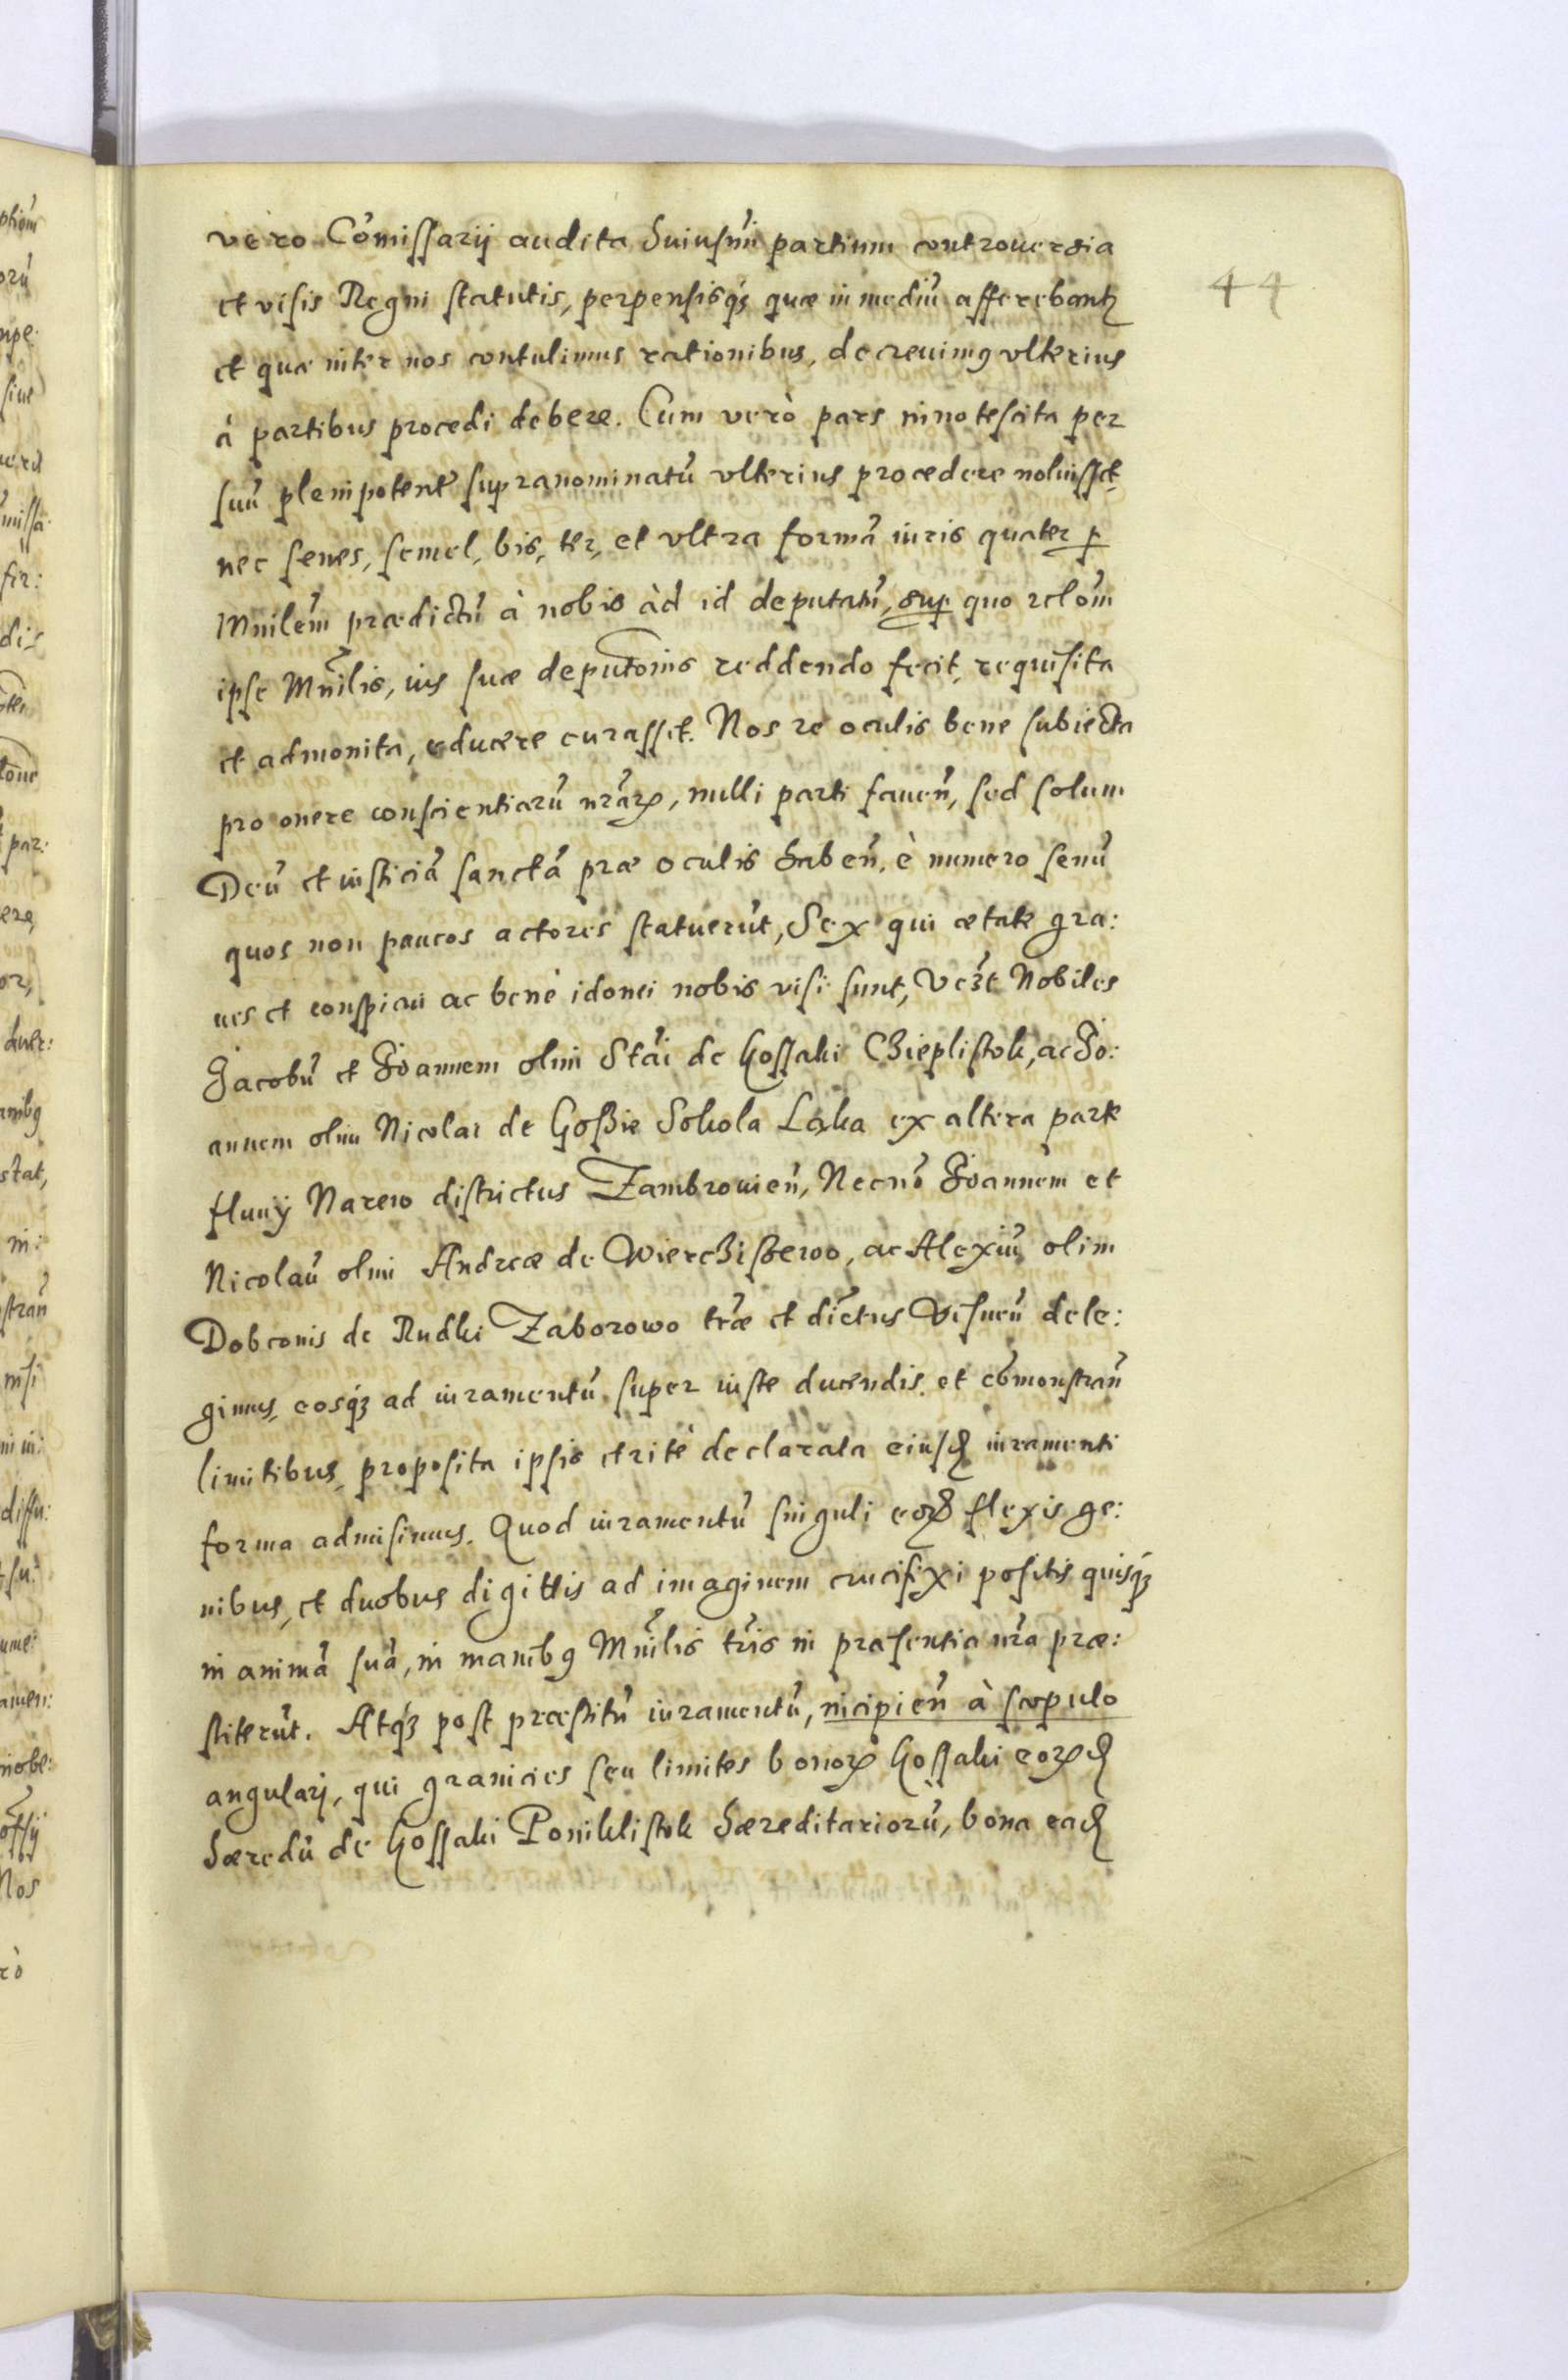 vero Com̃issarij audita huiusm̃i partium controuersia
et visis Regni statutis, perpensisq́ꝫ quæ in mediũ afferebantꝫ
et quæ inter nos contulimus rationibus, decreuimꝰ vlterius
à partibus procedi debere. Cum verò pars innotescita per
suũ plenipotent̃ supranominatũ vlterius procedere noluisset,
nec senes, semel, bis, ter, et vltra formã iuris quater ꝑ
Mnilẽm prædictũ à nobis àd id deputatũ, suꝑ quo relõm
ipse Mnĩlis, uis suæ deputõnis reddendo fecit, requisita
et admonita, educere curasset. Nos re oculis bene subiecta
pro onere conscientiarũ nrãꝝ, nulli parti fauen̄, sed solum
Deũ et iusticiã sanctã præ oculis haben̄, è numero senũ
quos non paucos actores statuerũt, Sex qui ætate gra:
ues et conspicui ac benè idonei nobis visi sunt, vcꝫt Nobiles
Jacobũ et Joannem olim Stãi de Gossaki Chieplistok, ac Jo:
annem olim Nicolai de Gossie Sokola Laka ex altera parte
fluuij Narew districtus Zambrouien̄, Necnõ Joannem et
Nicolaũ olim Andreæ de Wierchisewo, ac Alexiũ olim
Dobconis de Rudki Zaborowo trǣ et dĩctus Visnen̄ dele:
gimus, eosq́ꝫ ad iuramentũ super iuste ducendis et cõmonstran̄
limitibus, proposita ipsis et ritè declarata eiusđ iuramenti
forma admisimus. Quod iuramentũ singuli eoꝝ flexis ge:
nibus, et duobus digittis ad imaginem crucifixi positis quisq́ꝫ
in animã suã, in manibꝰ Mnĩlis trĩs in præsentia nrã præ:
stiterũt. Atq́ꝫ post præstitũ iuramentũ, incipien̄ à scopulo
angularj, qui granicies seu limites bonoꝝ Gossaki eoꝝđ
hæredũ de Gossaki Poniklistok hæreditariorũ, bona eađ
44